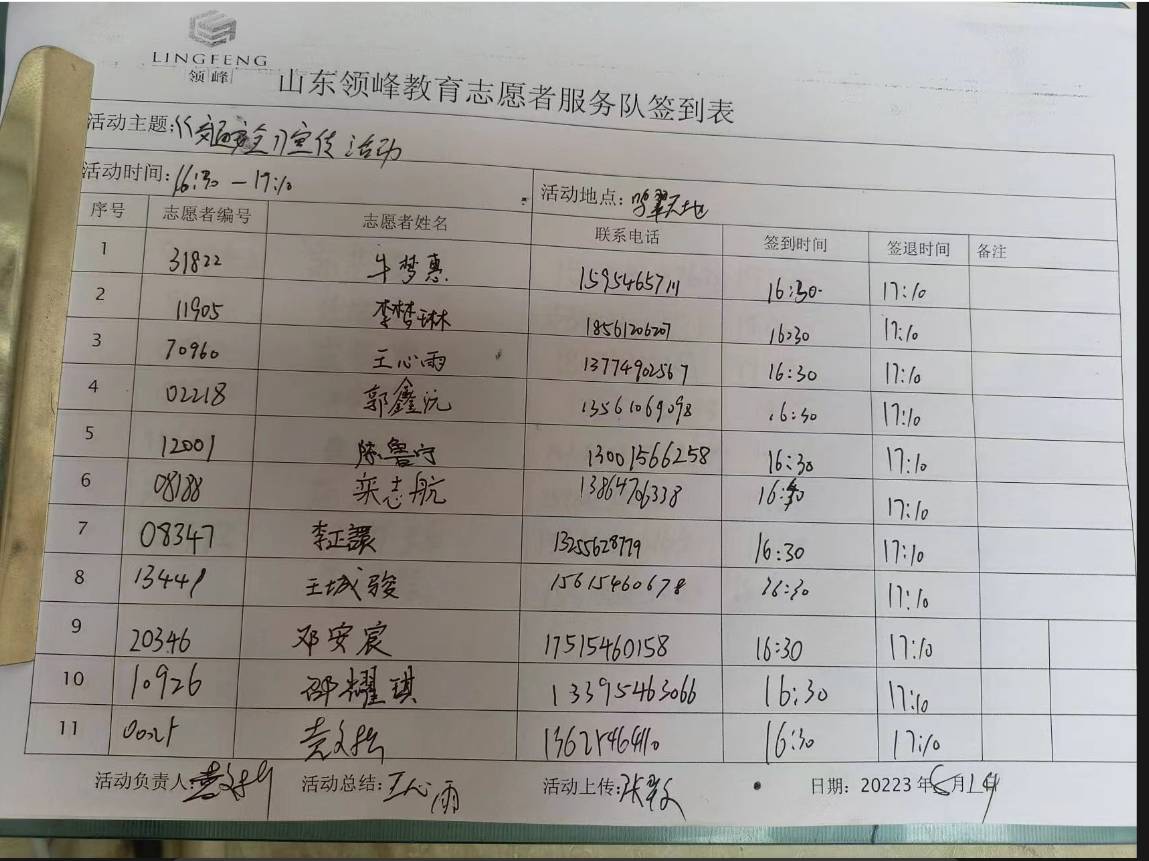 LINGFENG
领峰
山东领峰教育志愿者服务队签到表
活动主题:《交通安全》宣传活动
活动时间:16:30-17:10 活动地点:
序号 志愿者编号 志愿者姓名 联系电话 签到时间 签退时间 备注
1 31822 牛梦惠 15954657111 16:30 17:10
2 11905 李梦琳 18561206207 16:30 17:10
3 70960 王心雨 13774902567 16:30 17:10
4 02218 郭鑫沅 13561069098 16:30 17:10
5 12001 陈鲁宁 13001566258 16:30 17:10
6 08188 栾志航 13864706338 16:30 17:10
7 08347 李正譞 13255628779 16:30 17:10
8 13441 王城骏 15615460678 16:30 17:10
9 20346 邓安宸 17515460158 16:30 17:10
10 10926 邵耀琪 13395463066 16:30 17:10
11 16:30 17:10
活动负责人: 活动总结:王心雨 活动上传: 日期:20223年6月